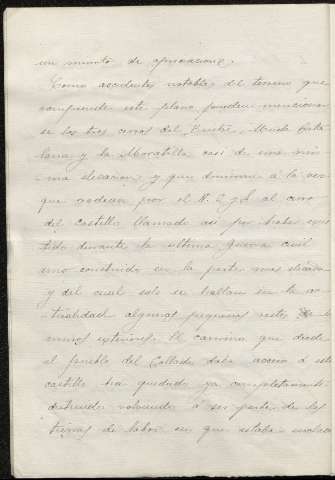 un minuto de aproximación.
Como accidentes notables del terreno que
comprende este plano, pueden mencionar-
se los tres cerros del
y la Moratilla casi de una mis-
ma elevación, y que dominan á la vez
que rodean por el N. E. y S. al cerro
del Castillo llamado así por haber exis-
tido durante la última guerra civil
uno construido en la parte mas elevada
y del cual solo se hallan en la ac-
tualidad algunos pequeños restos de
muros exteriores. El camino que desde
el pueblo del Collado daba acceso á este
castillo ha quedado ya completamente
destruido volviendo á ser parte de las
tierras de labor en que estaba